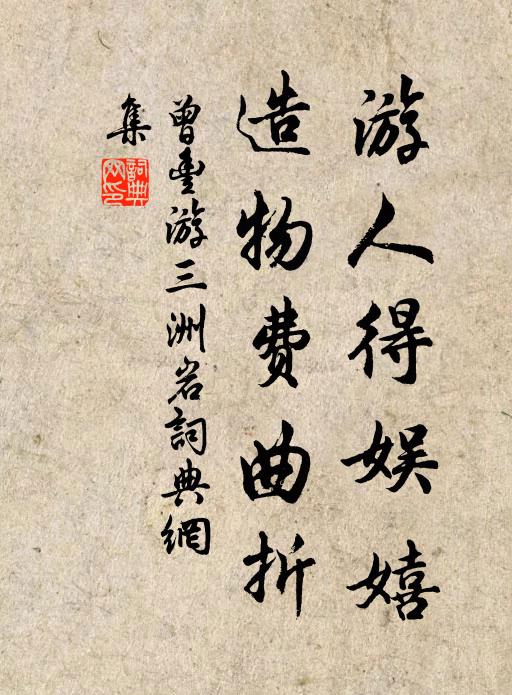 游人得娛嬉
造物費曲折
曾豐游三洲岩詞典網
集
詞典網印